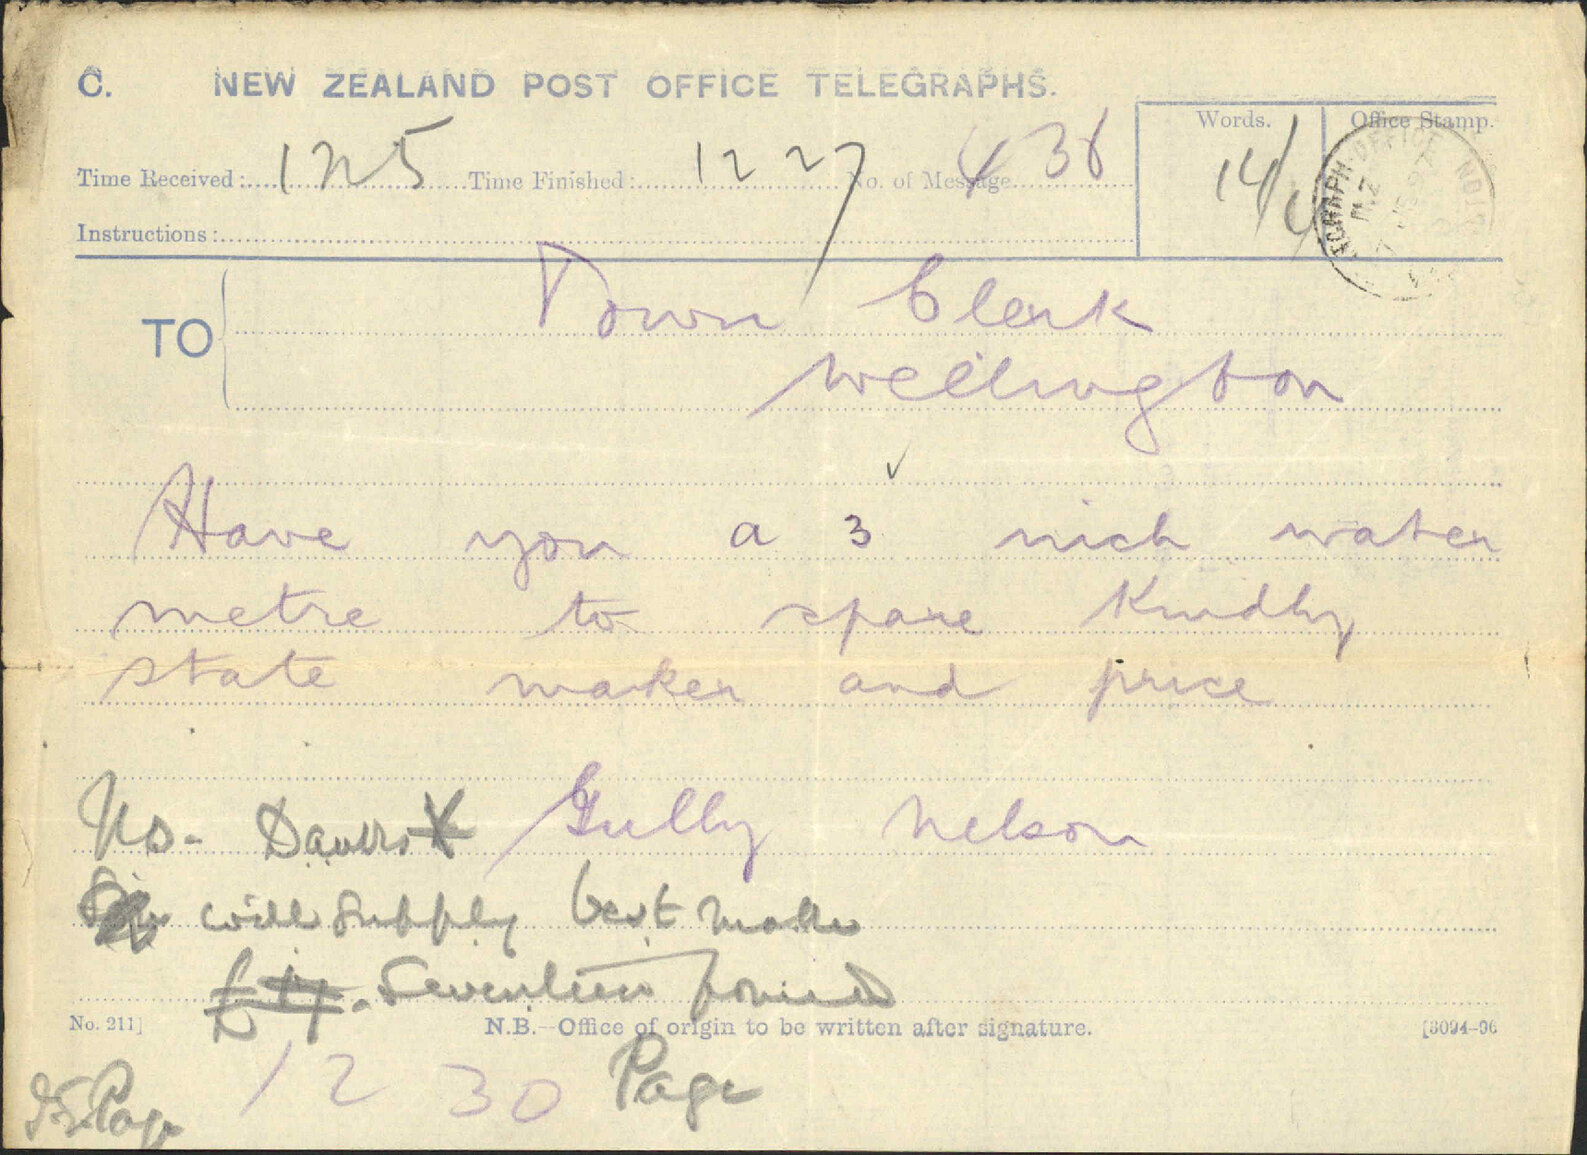 C. NEW ZEALAND POST OFFICE TELEGRAPHS.
Words. Office Stamp.
Time Received: 12 25 Time Finished: 12 27 No. of Message 436
14/
Instructions:
TO Town Clerk
Wellington
Have you a 3 inch water
metre to spare Kindly
state maker and price
Gully Nelson
No -
will supply best make
£17. Seventeen pounds
No. 211] N.B.—Office of origin to be written after signature. [3094-96
12 30 Page
Page